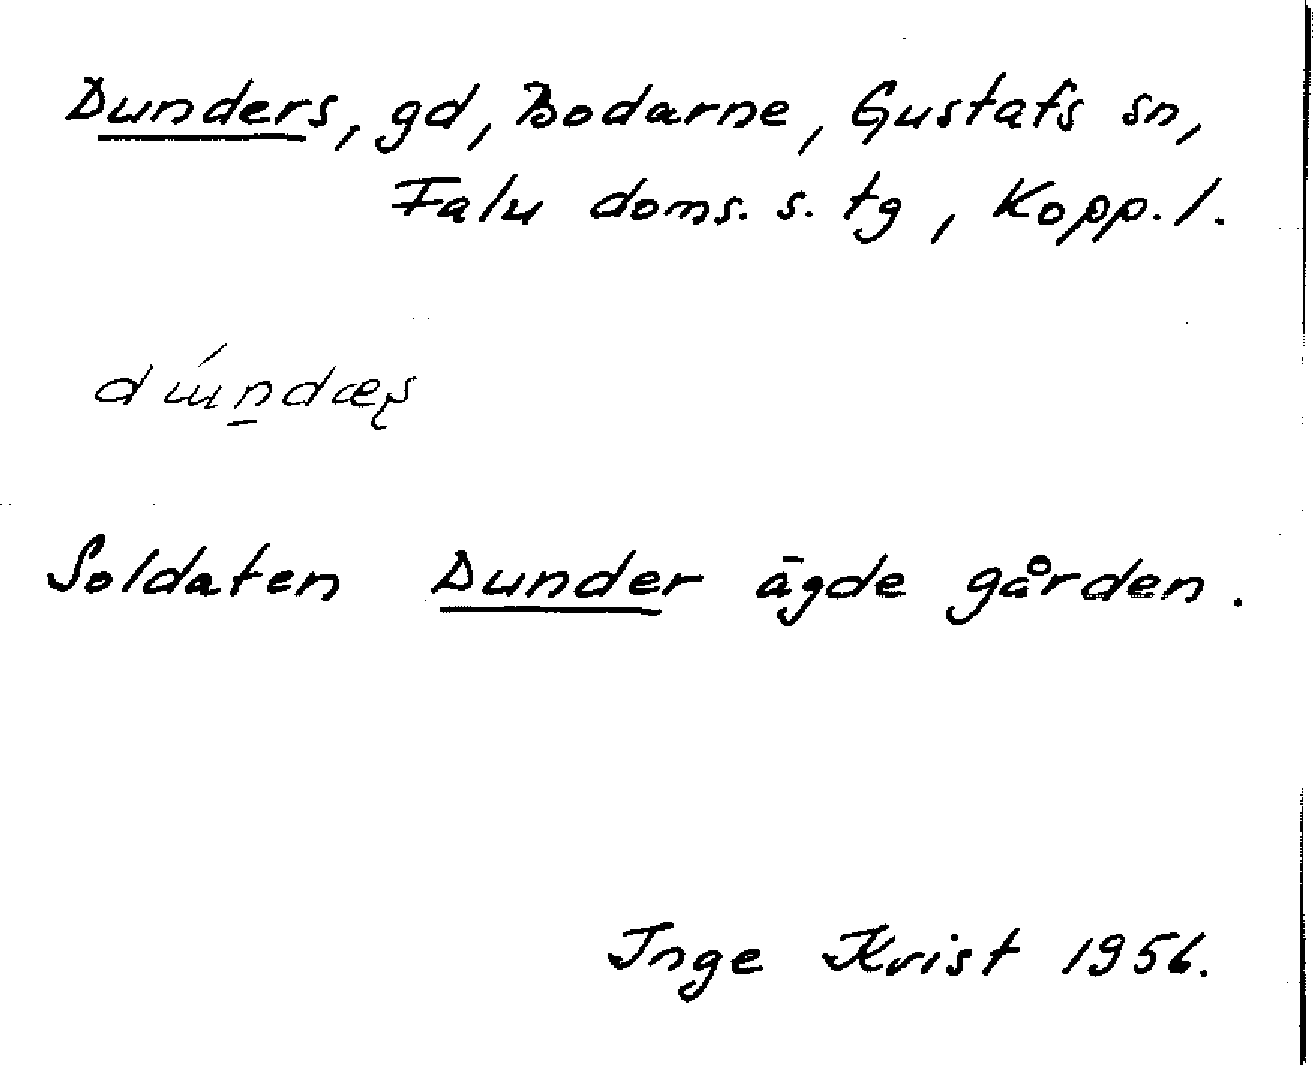 Dunders, gd, Bodarne, Gustafs sn,
Falu doms. s. tg, Kopp. l.
Soldaten Dunder ägde gården.
Inge Krist 1956.